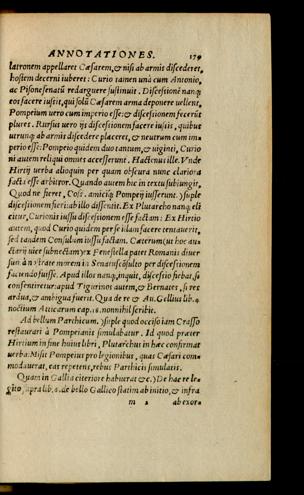 ANNOTATIONES. 179
latronem appellaret Cæsarem, & nisi ab armis discederet,
hostem decerni iuberet: Curio tamen unà cum Antonio,
ac Pisone senatũ redarguere sustinuit. Discessionē nanq;
eos facere iussit, qui solũ Cæsarem arma deponere uellent,
Pompeium uero cum imperio esse: & discessionem fecerũt
plures. Rursus uero ijs discessionem facere iussit, quibus
utrunq; ab armis discedere placeret, & neutrum cum im-
perio esse: Pompeio quidem duo tantum, & uiginti, Curio
ni autem reliqui omnes accesserunt. Hactenus ille. Vnde
Hirtij uerba alioquin per quam obscura nunc clariora
facta esse arbitror. Quando autem hic in textu subiungit,
Quod ne fieret, Coss. amiciq; Pompeij iusserunt. ) suple
discessionem fieri: ab illo dissentit. Ex Plutarcho nanq; eli
citur, Curionis iussu discessionem esse factam: Ex Hirtio
autem, quod Curio quidem per se idam facere tentauerit,
sed tandem Consulum iussu factam. Cæterum (ut hoc au-
ctarij uice subnectam) ex Fenestella patet Romanis diuer
sum à nostrate morem in Senatuscõsulto per discessionem
faciendo fuisse. Apud illos nanq; inquit, discessio fiebat, si
consentiretur: apud Tigurinos autem, & Bernates, si res
ardua, & ambigua fuerit. Qua de re & Au. Gellius lib. 4
noctium Atticarum cap. 18. nonnihil scribit.
Ad bellum Parthicum. ) suple quod occiso iam Crasso
restaurari à Pompeianis simulabatur. Id quod præter
Hirtium in fine huius libri, Plutarchus in hæc confirmat
uerba: Misit Pompeius pro legionibus, quas Cæsari com-
modauerat, eas repetens, rebus Parthicis simulatis.
Quam in Gallia citeriore habuerat &c.) De hac re le-
gito supra lib. 1. de bello Gallico statim ab initio, & infra
m 2 ab exor-